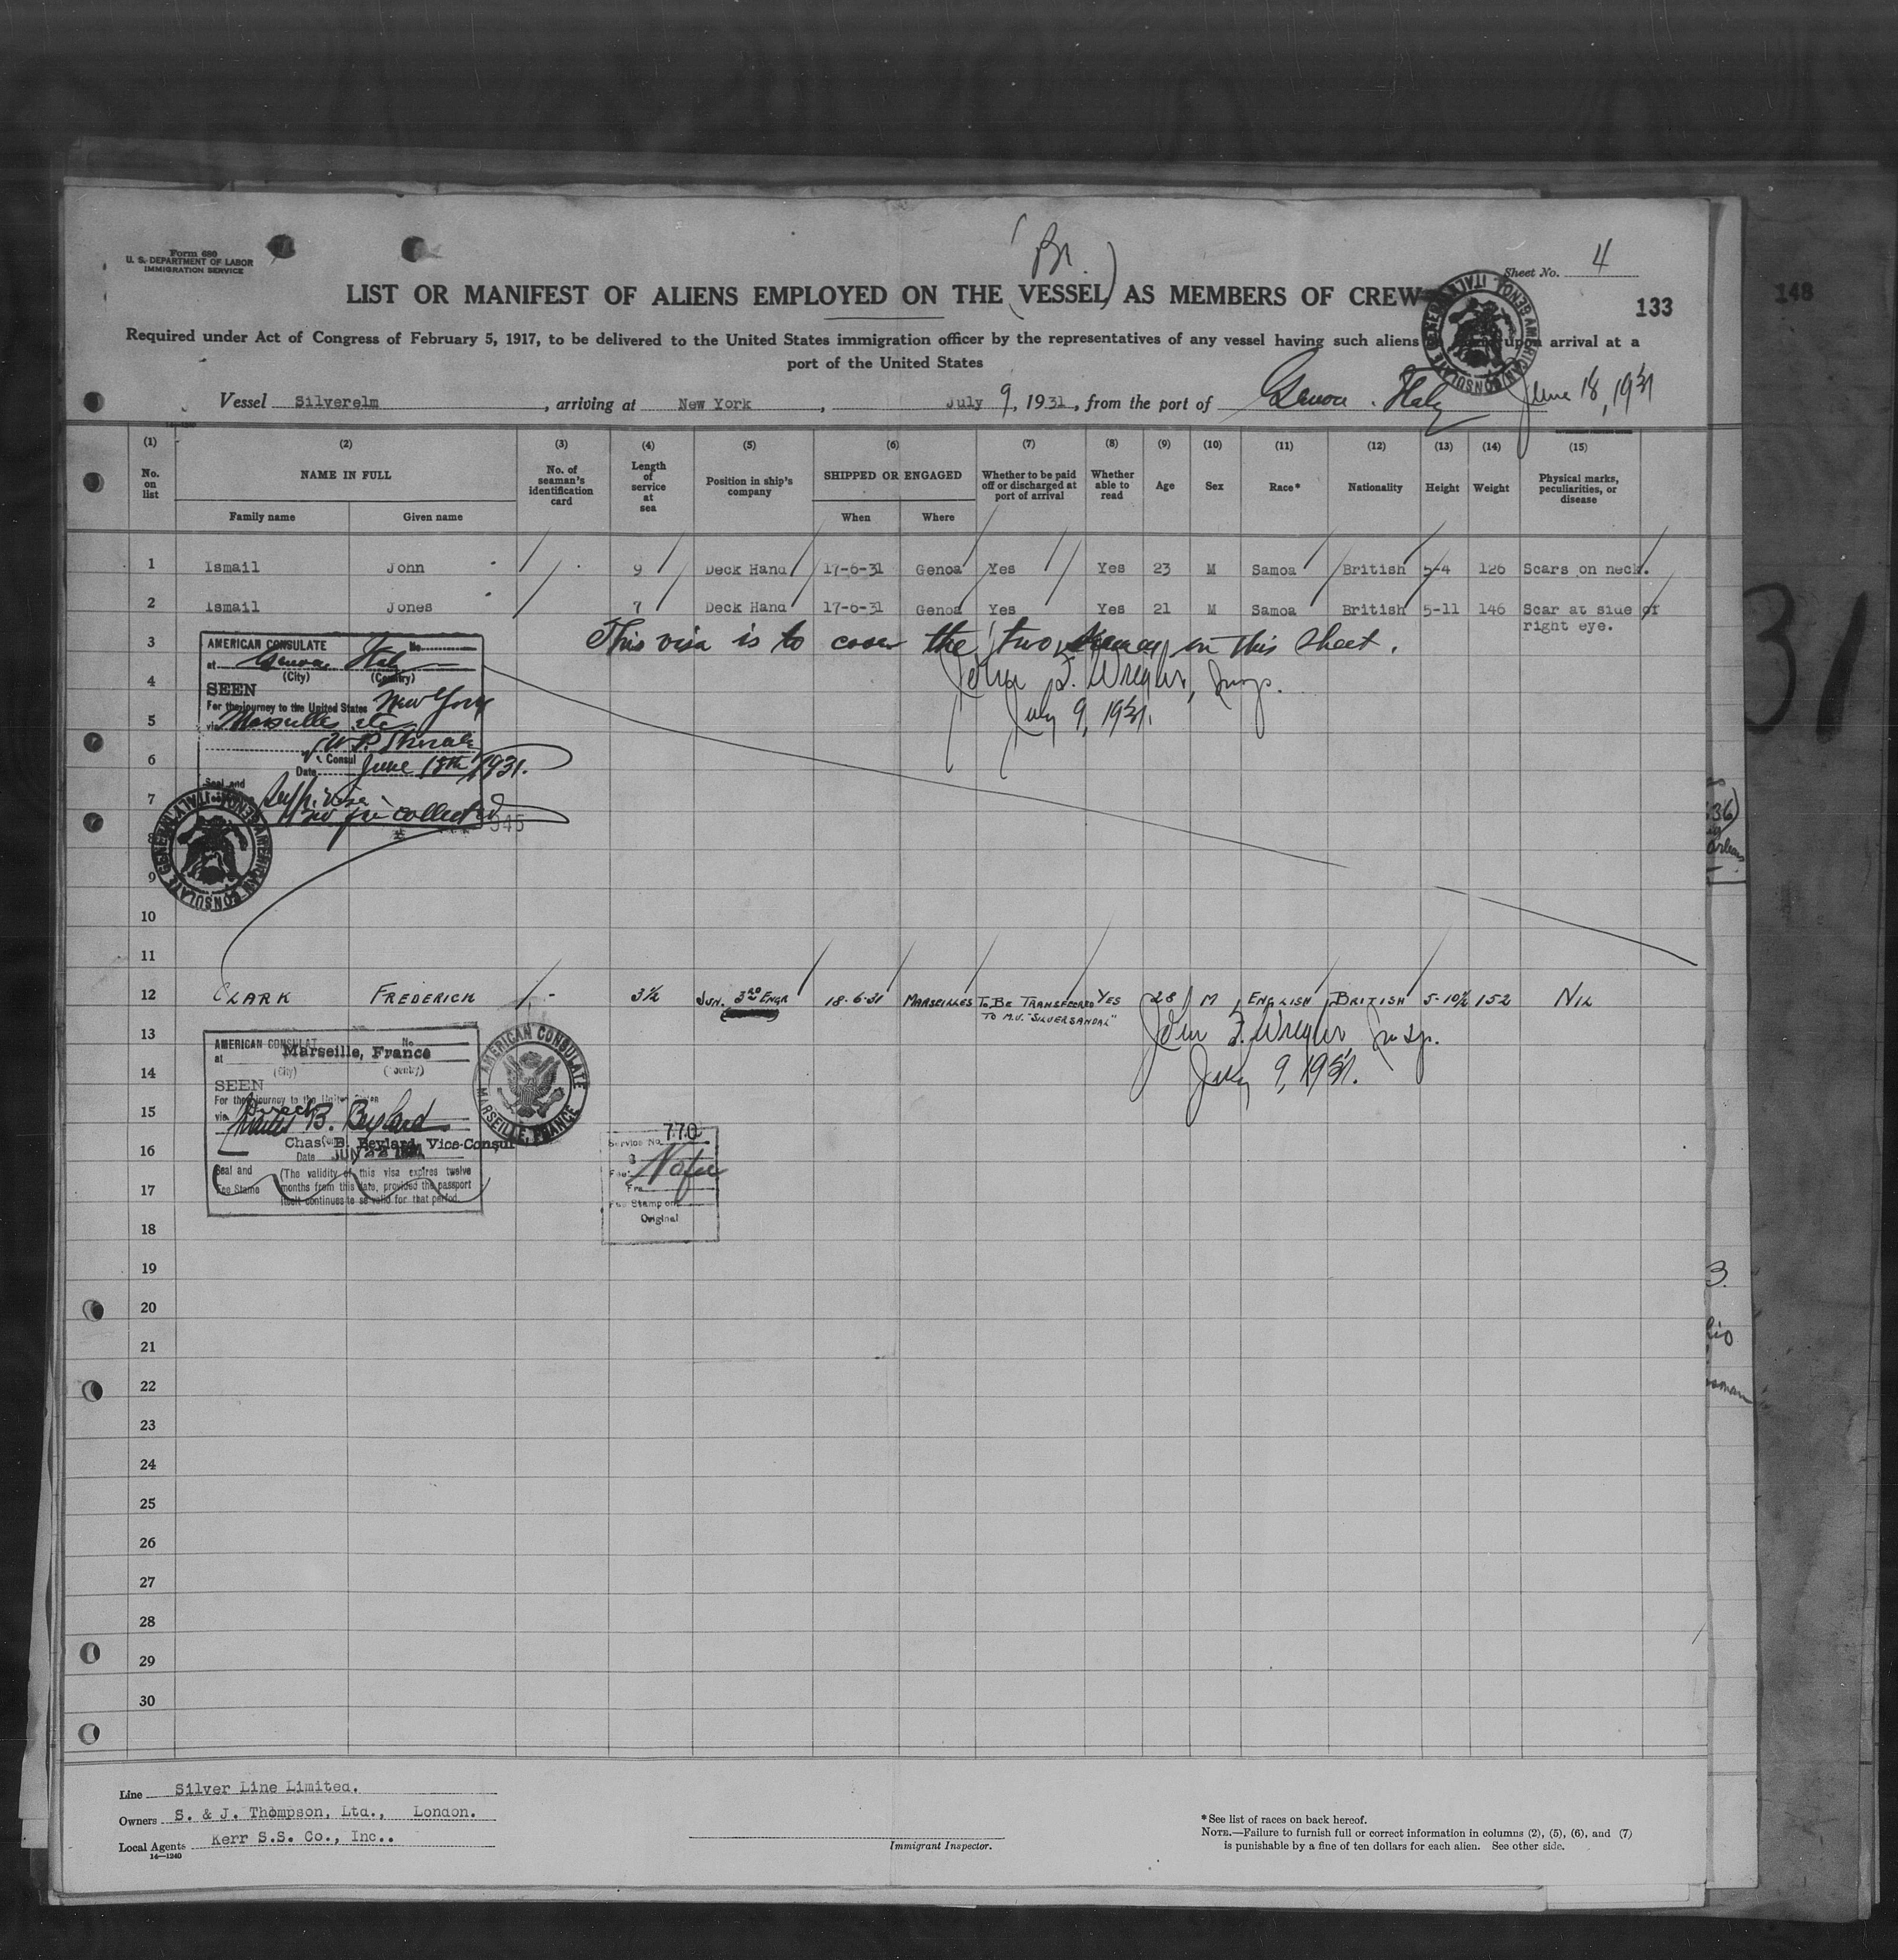 Form 680
U. S. DEPARTMENT OF LABOR
IMMIGRATION SERVICE
(Br.)
Sheet No. 4
LIST OR MANIFEST OF ALIENS EMPLOYED ON THE VESSEL AS MEMBERS OF CREW
133
148
Required under Act of Congress of February 5, 1917, to be delivered to the United States immigration officer by the representatives of any vessel having such aliens upon arrival at a
port of the United States
AMERICAN CONSULATE GENERAL GENOA ITALY
Vessel Silverelm, arriving at New York, July 9, 1931, from the port of Genoa. Italy June 18, 1931
(1) (2) (3) (4) (5) (6) (7) (8) (9) (10) (11) (12) (13) (14) (15)
No. on list
NAME IN FULL
Family name Given name
No. of seaman's identification card
Length of service at sea
Position in ship's company
SHIPPED OR ENGAGED
When Where
Whether to be paid off or discharged at port of arrival
Whether able to read
Age
Sex
Race*
Nationality
Height
Weight
Physical marks, peculiarities, or disease
1 Ismail John 9 Deck Hand 17-6-31 Genoa Yes Yes 23 M Samoa British 5-4 126 Scars on neck.
2 Ismail Jones 7 Deck Hand 17-6-31 Genoa Yes Yes 21 M Samoa British 5-11 146 Scar at side of
right eye.
3 This visa is to cover the two seamen on this sheet.
AMERICAN CONSULATE No.
at Genoa Italy
(City) (Country)
4
SEEN
For the journey to the United States New York
July 9, 1931.
5
via Marseilles etc
6
Consul
Date June 18th, 1931.
7
Seal and
no fee collected
345
8
AMERICAN CONSULATE GENERAL GENOA ITALY
9
10
11
12 CLARK FREDERICK - 3½ JUN. 3RD ENGR 18-6-31 MARSEILLES TO BE TRANSFERRED YES 28 M ENGLISH BRITISH 5-10½ 152 NIL
TO M.V. "SILVERSANDAL"
13
AMERICAN CONSULAT No
at Marseille, France
(City) (Country)
14
SEEN
July 9, 1931.
For the journey to the United States
AMERICAN CONSULATE MARSEILLE, FRANCE
15
via Direct
Charles B. Beylard
Chas. B. Beylard, Vice-Consul
16
Date JUN 22 1931
Service No. 770
Fee No fee
Frs
Fee Stamp on
Original
17
Seal and
Fee Stamp
(The validity of this visa expires twelve
months from this date, provided the passport
itself continues to be valid for that period.
18
19
20
21
22
23
24
25
26
27
28
29
30
Line Silver Line Limited.
Owners S. & J. Thompson, Ltd., London.
Local Agents Kerr S.S. Co., Inc..
14—1240
Immigrant Inspector.
* See list of races on back hereof.
NOTE.—Failure to furnish full or correct information in columns (2), (5), (6), and (7)
is punishable by a fine of ten dollars for each alien. See other side.
31